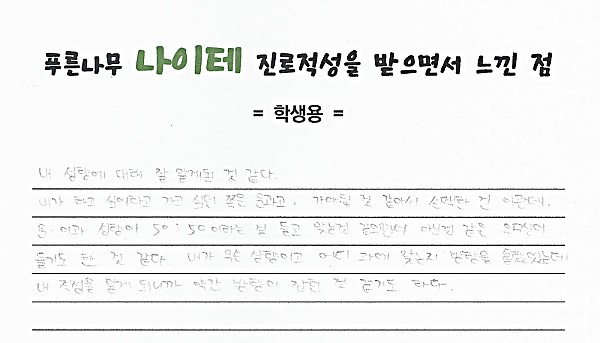 푸른나무 나이테 진로적성을 받으면서 느낀 점
= 학생용 =
내 성향에 대해 잘 알게된 것 같다.
내가 하고 싶어하고 가고 싶던 쪽은 문과고, 가야할 것 같아서 선택한 건 이관데,
문·이과 성향이 50:50이라는 걸 듣고 맞는것 같으면서 아닌것 같은
들기도 한 것 같다. 내가 무슨 성향이고 어디 과에 맞는지 방향을 몰랐었는데
내 적성을 알게 되니까 약간 방향이 잡힌 것 같기도 하다.